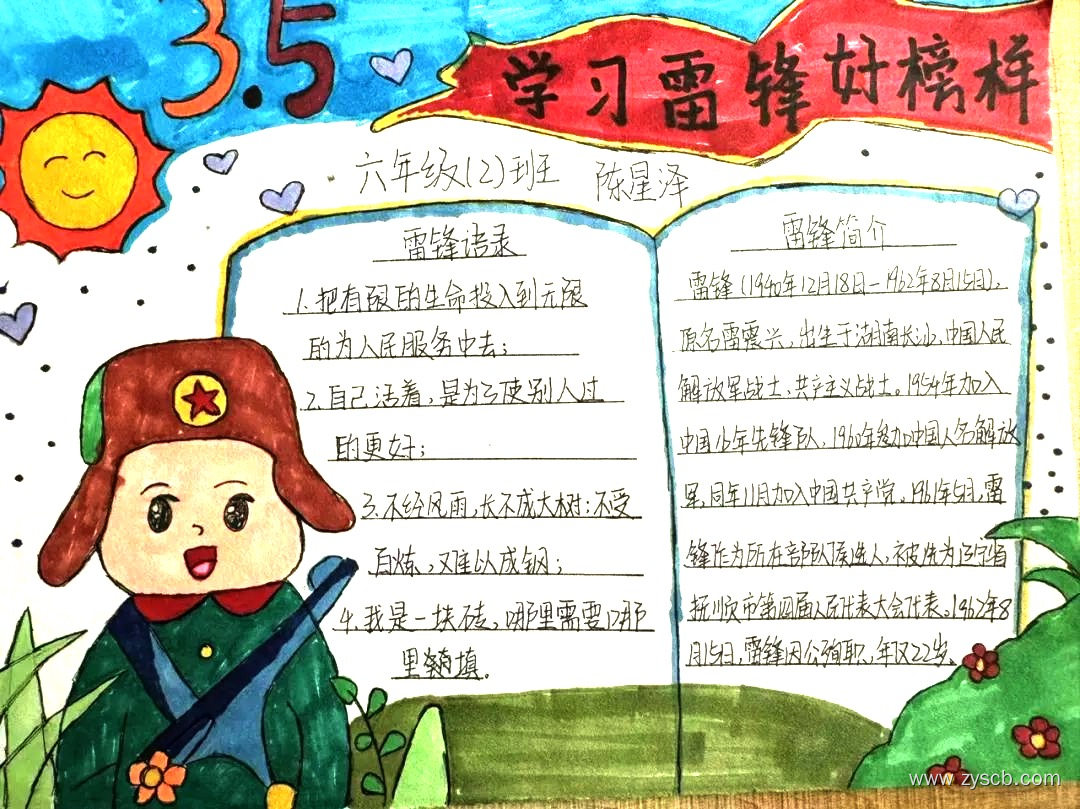 3.5
学习雷锋好榜样
六年级(2)班 陈星泽
雷锋语录
1.把有限的生命投入到无限
的为人民服务中去;
2.自己活着,是为了使别人过
的更好;
3.不经风雨,长不成大树;不受
百炼,难以成钢;
4.我是一块砖,哪里需要哪
里填.
雷锋简介
雷锋(1940年12月18日—1962年8月15日),
原名雷震兴,出生于湖南长沙,中国人民
解放军战士,共产主义战士。1954年加入
中国少年先锋队,1960年参加中国人名解放
军,同年11月加入中国共产党。1961年5月,雷
锋作为所在部队候选人,被选为辽宁省
抚顺市第四届人民代表大会代表。1962年8
月15日,雷锋因公殉职,年仅22岁。
www.zyscb.com